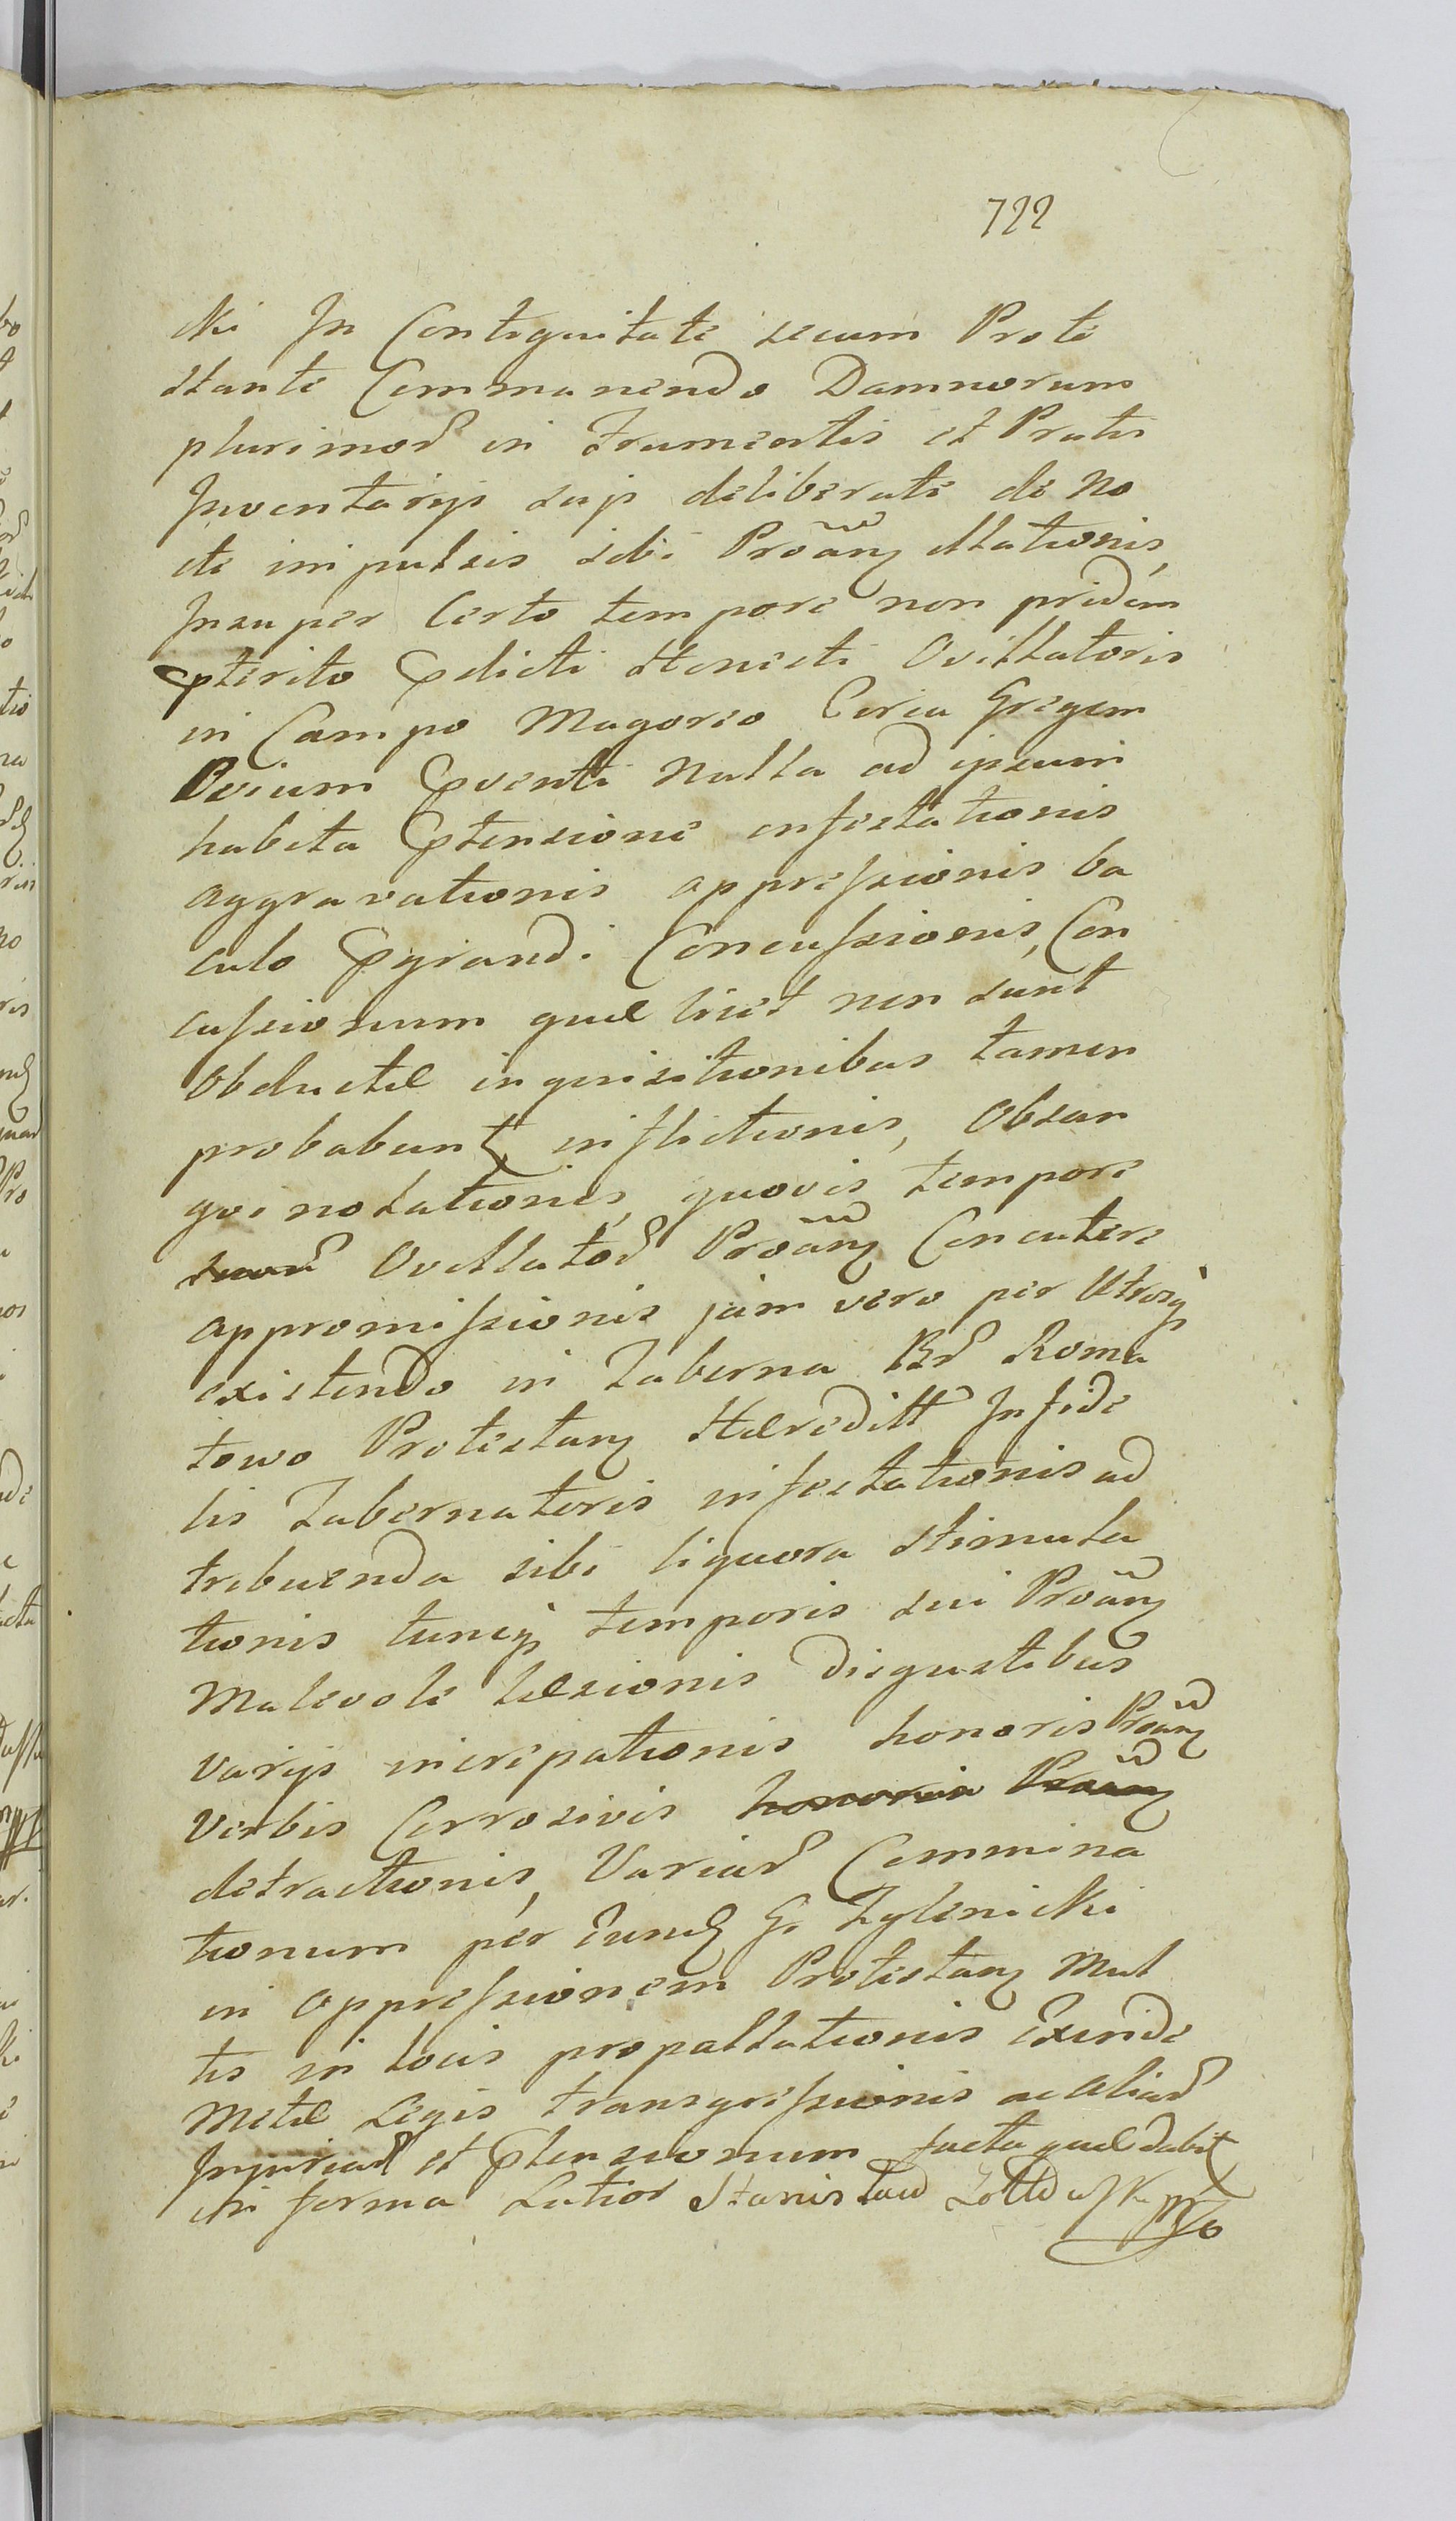 722
cki In Contiguitate secum Prote
stante Commanendo Damnorum
plurimor in Frumentis et Pratis
Inventarijs suis deliberate de No
cte impulsis sibi Proãng illationis,
Insuper Certo tempore non pridem
pterito pdicti Honesti Ovillatoris
in Campo Magoreo Circa Gregem
Ovium pventi Nulla ad ipsum
habita ptensione infestationis
aggravationis oppressionis ba
culo pgrandi Concussionis, Con
cussionum quæ licet non sunt
Obductæ inquisitionibus tamen
probabunt inflictionis, Obsan
gvinolationis, quovis tempore
Ovillator Proãng Concutere
appromissionis jam vero per Utrosq
existendo in Taberna Br Roma
towo Protestang Hæreditt Infide
lis Tabernatoris infestationis ad
tribuenda sibi liquora stimula
tionis tuncq temporis sui Proãng
Malevole læsionis disgustibus
Varijs increpationis honoris Proãng
Verbis Corrosivis honoris Proãng
detractionis, Variar Commina
tionum per Eund G. Zylenicki
in oppressionem Protestang Mul
tis in locis propallationis Exinde
Metæ Legis transgressionis ac aliar
Injuriar et ptensionum facta quæ dabit
in forma Latior Stanislaw